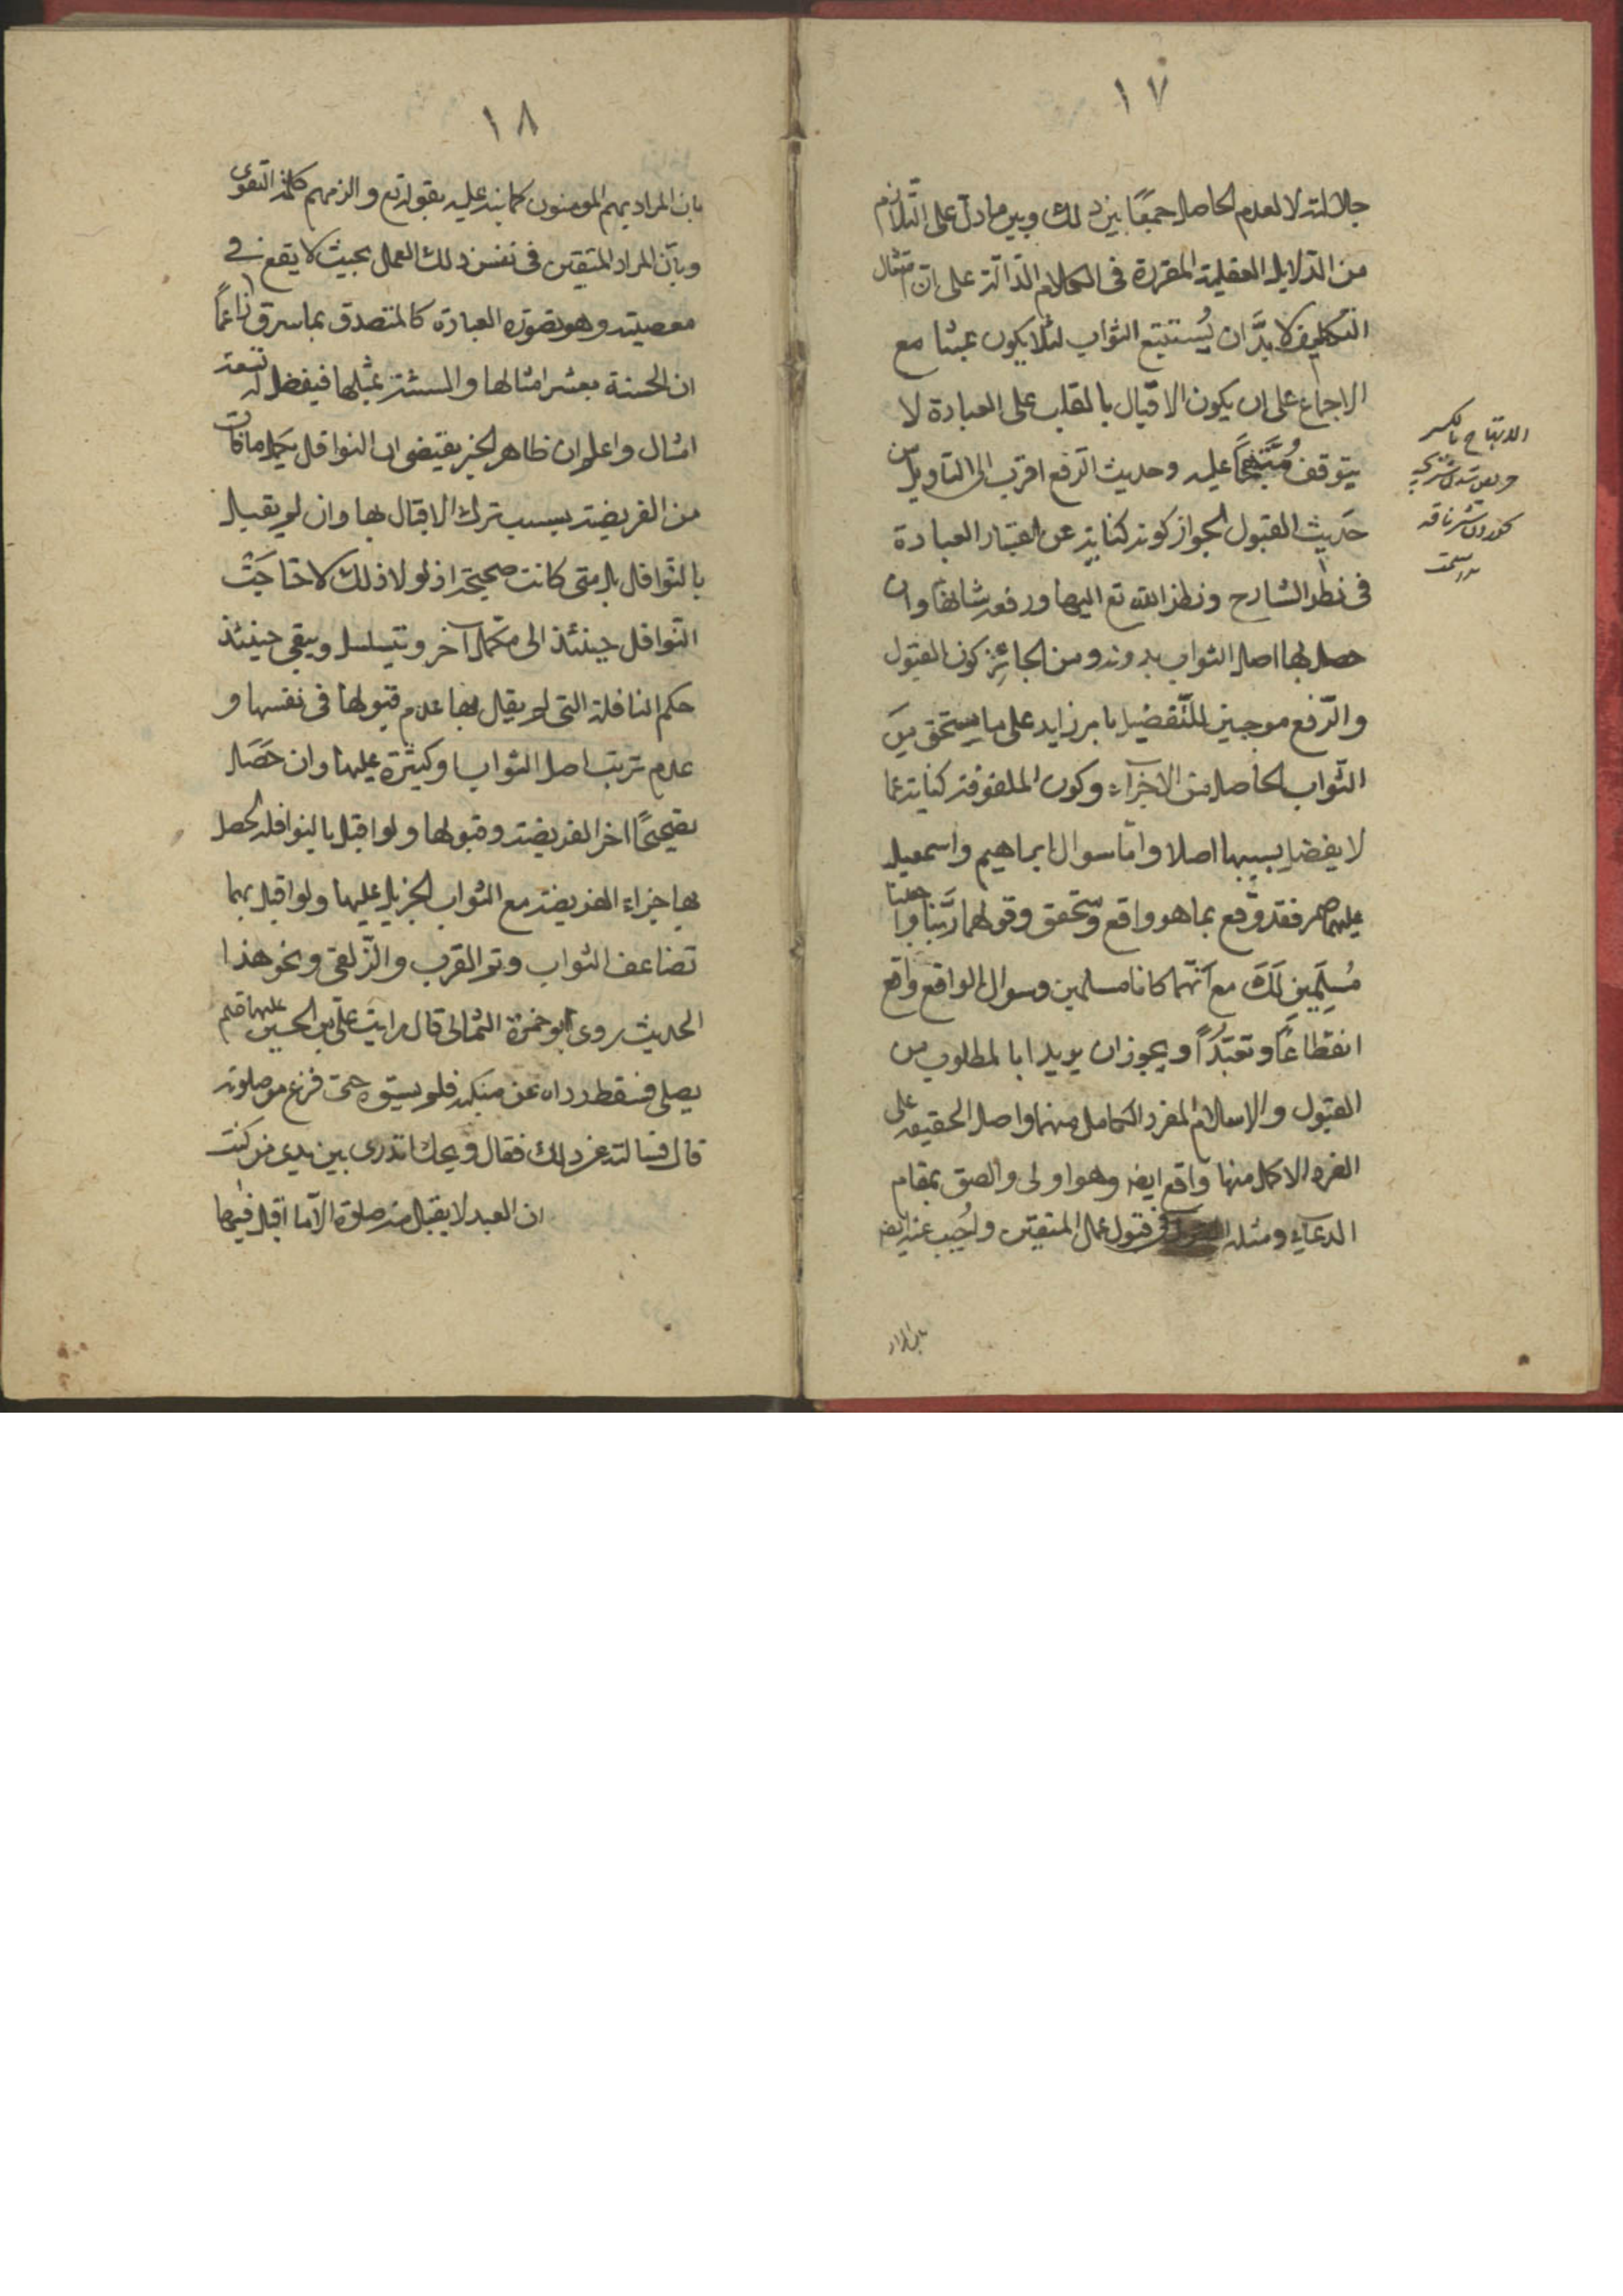 ١٧
جلالته لا لعدم الحاصل جمعًا بين ذلك وبين ما دلّ على التّلازم
من الدّلايل العقلية المقررة فى الكلام الدّالّة على انّ امتثال
التكليف لا بدَّ ان يُستتبع الثواب لئلا يكون عبثا مع
الاجماع على ان يكون الاقبال بالقلب على العبادة لا
يتوقف عليه وحديث الرفع اقرب الى التاويل من
حَديث القبول لجواز كونه كناية عن اعتبار العبادة
فى نظر الشارح ونظر الله تع اليها ورفعه شانها وان
حصل لها اصل الثواب بدونه ومن الجائز كون القبول
والرّفع موجبين للتّفضيل بامر زايد على ما يستحق مِنَ
الثّواب الحاصل من الاجزآء وكون الملفوفة كناية عما
لا يفضل بسببها اصلا وامّا سوال ابراهيم واسمعيل
عليهما فقد وقع بما هو واقع ومتحقق وقولهما رَبَّنا وَاجعلنا
مُسلِمَينِ لَكَ مع انّهما كانا مسلمين وسوال الواقع واقع
انقطاعًا وتعبّدًا ويجوز ان يريدا بالمطلوب من
القبول والاسلام الفرد الكامل منهما واصل الحقيقه على
الفرد الاكمل منها واقع ايضه وهو اولى والصق بمقام
الدعآء ومثله فى قبول عمل المتقين واُجيب عنه ايضه
بان المراد
الابتهاج بالكسر
١٨
بان المراد بهم المومنون كما نبه عليه بقوله تع والزمهم كلمة التقوى
وبانّ المراد المتيقين فى نفس ذلك العمل بحيث لا يقع فى
معصيته وهو بصورة العبادة كالمتصدق بما سرق زاعمًا
ان الحسنة بعشر امثالها والسيئة بمثلها فيفضل له تسعة
امثال واعلم ان ظاهر الخبر يقتضى ان النوافل يكمل ما فات
من الفريضة بسبب ترك الاقبال بها وان لم يقبل
بالنّوافل بل متى كانت صحيحة اذ لو لا ذلك لاحتاجَتْ
النّوافل حينئذ الى مكمّل آخر ويتسلسل ويبقى حينئذ
حكم النافلة التى لم يقبل بها عدم قبولها فى نفسها و
عدم ترتب اصل الثواب او كثرة عليها وان حَصَل
اخر الفريضة وقبولها ولو اقبل بالنوافل حصل
بها جزاء الفريضة مع الثواب الجزيل عليها ولو اقبل بهما
تضاعف الثواب وتم القرب والزّلفى ونحو هذا
الحديث روى ابو حمزة الثمالى قال رايت علىّ بن الحسين عليهما
يصلى فسقط رداه عن منكبه فلم يسوّه حتى فرغ من صلوته
قال فسالته عن ذلك فقال ويحك اتدرى بين يدى من كنت
ان العبد لا يقبل منه صلوة الّا ما اقبل فيها